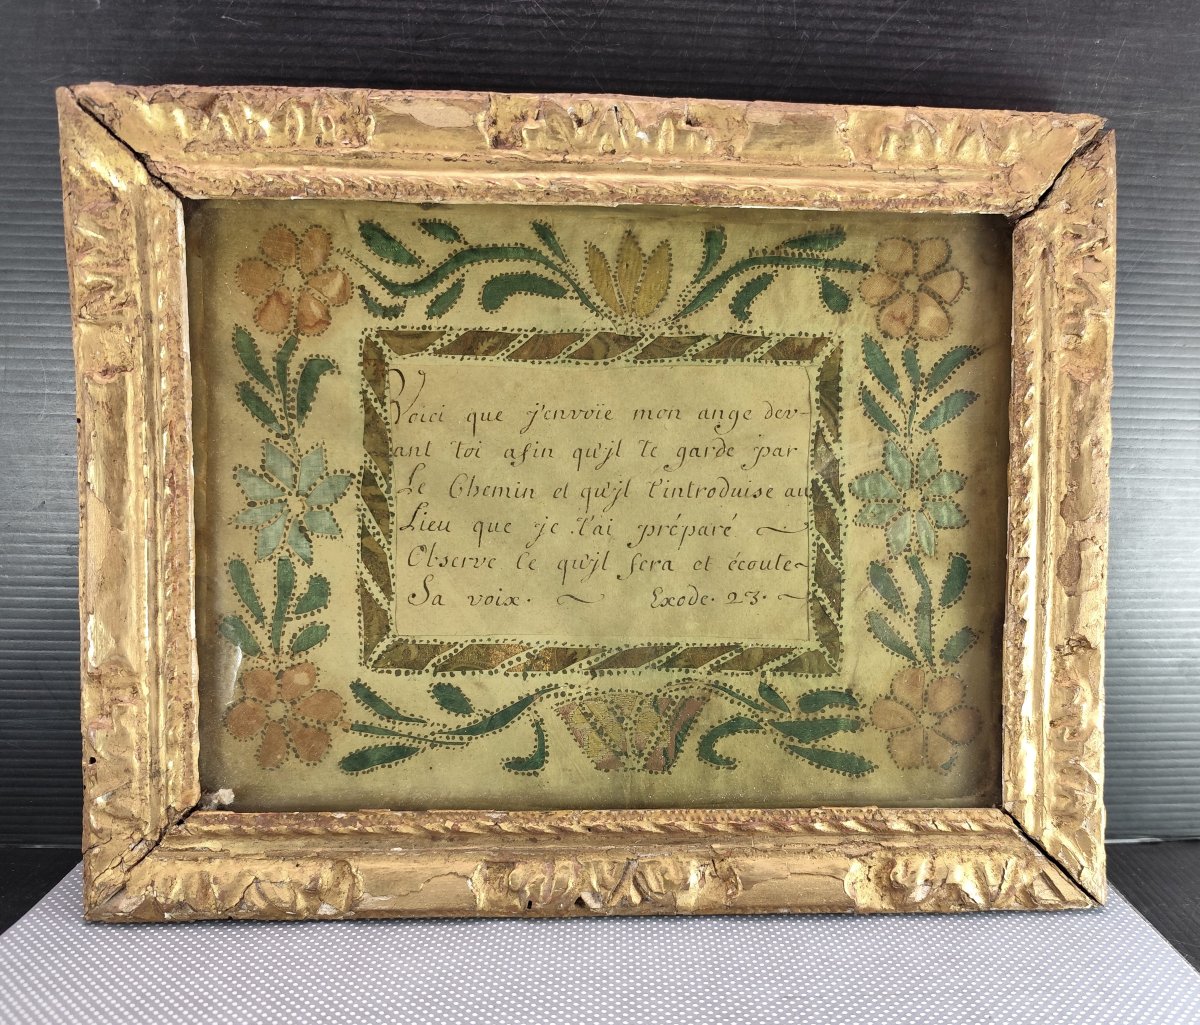 Voici que j'envoïe mon ange dev-
ant toi afin qu'jl te garde par
Le Chemin et qu'jl t'introduise au
Lieu que je t'ai préparé ~
Observe le qu'jl sera et écoute~
Sa voix. ~ Exode. 23. ~